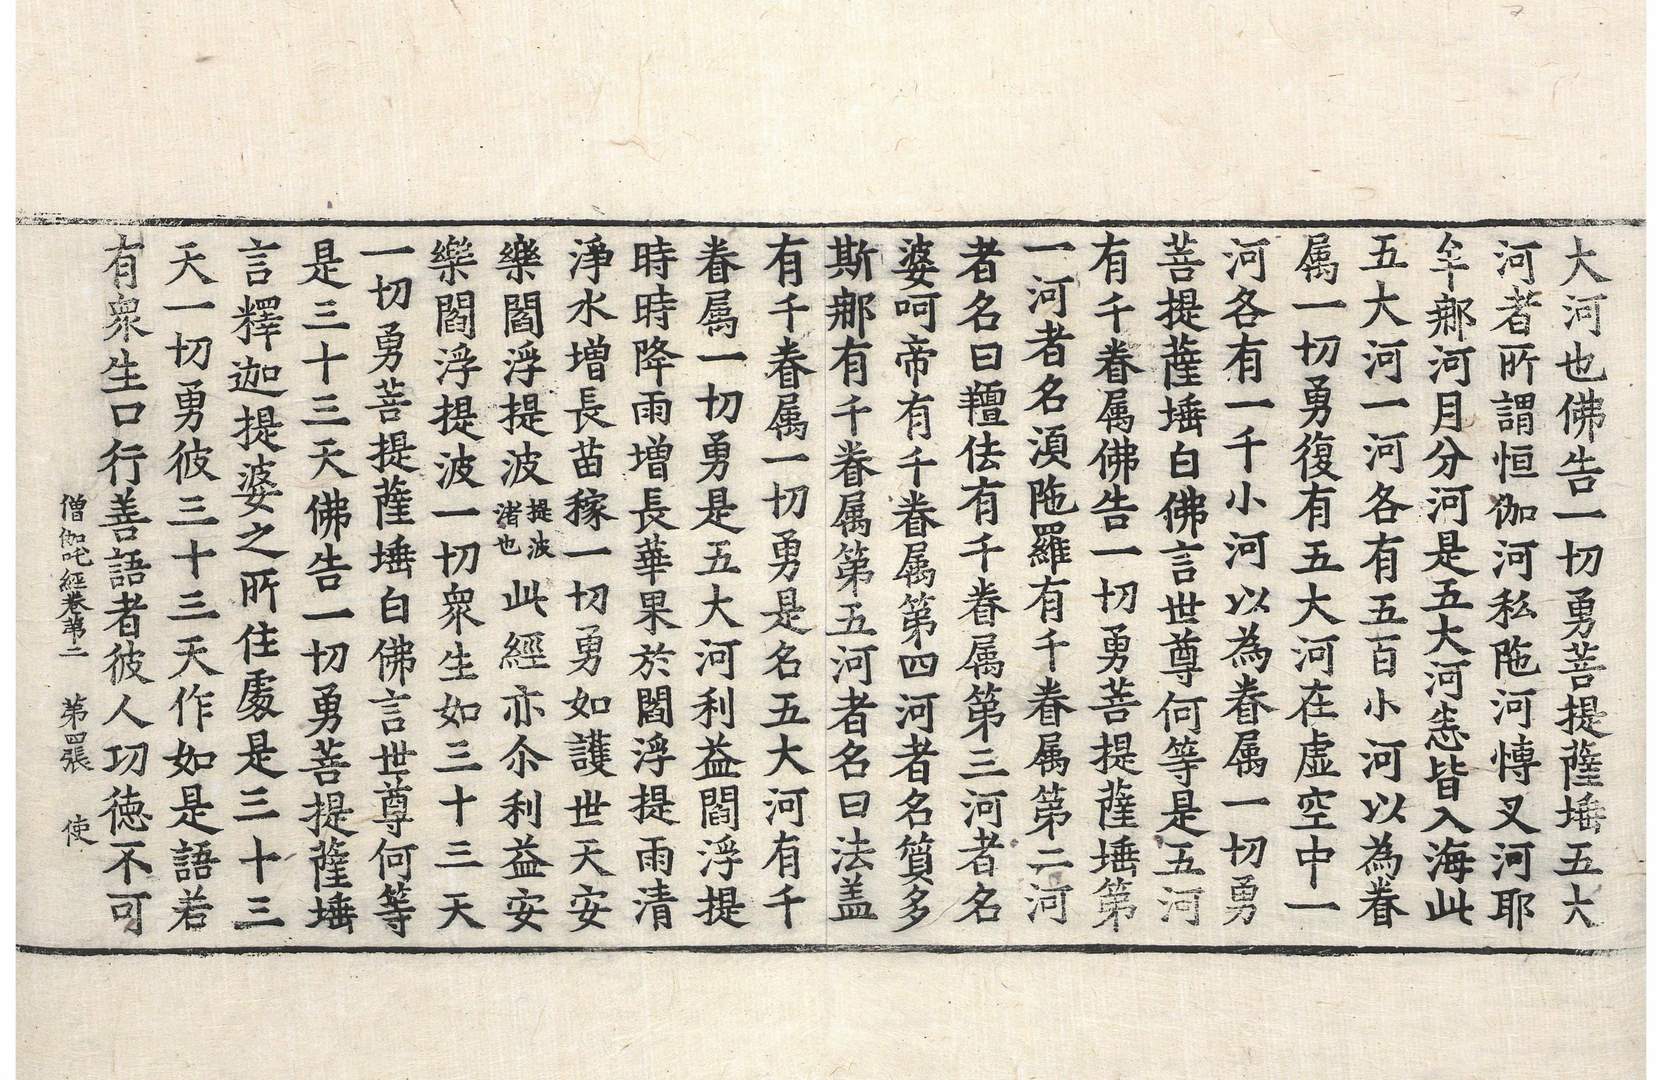 大河也佛告一切勇菩提薩埵五大
河者所謂恒伽河私陁河慱叉河耶
牟𨚗河月分河是五大河悉皆入海此
五大河一河各有五百小河以為眷
属一切勇復有五大河在虛空中一
河各有一千小河以為眷属一切勇
菩提薩埵白佛言世尊何等是五河
有千眷属佛告一切勇菩提薩埵第
一河者名湏陁羅有千眷属第二河
者名曰䡀佉有千眷属第三河者名
婆呵帝有千眷属第四河者名質多
斯𨚗有千眷属第五河者名曰法盖
有千眷属一切勇是名五大河有千
眷属一切勇是五大河利益閻浮提
時時降雨增長華果於閻浮提雨清
淨水增長苗稼一切勇如護世天安
樂閻浮提波提波渚也此經亦尒利益安
樂閻浮提波一切衆生如三十三天
一切勇菩提薩埵白佛言世尊何等
是三十三天佛告一切勇菩提薩埵
言釋迦提婆之所住處是三十三
天一切勇彼三十三天作如是語若
有衆生口行善語者彼人功德不可
僧伽吒經卷苐二 第四張 使